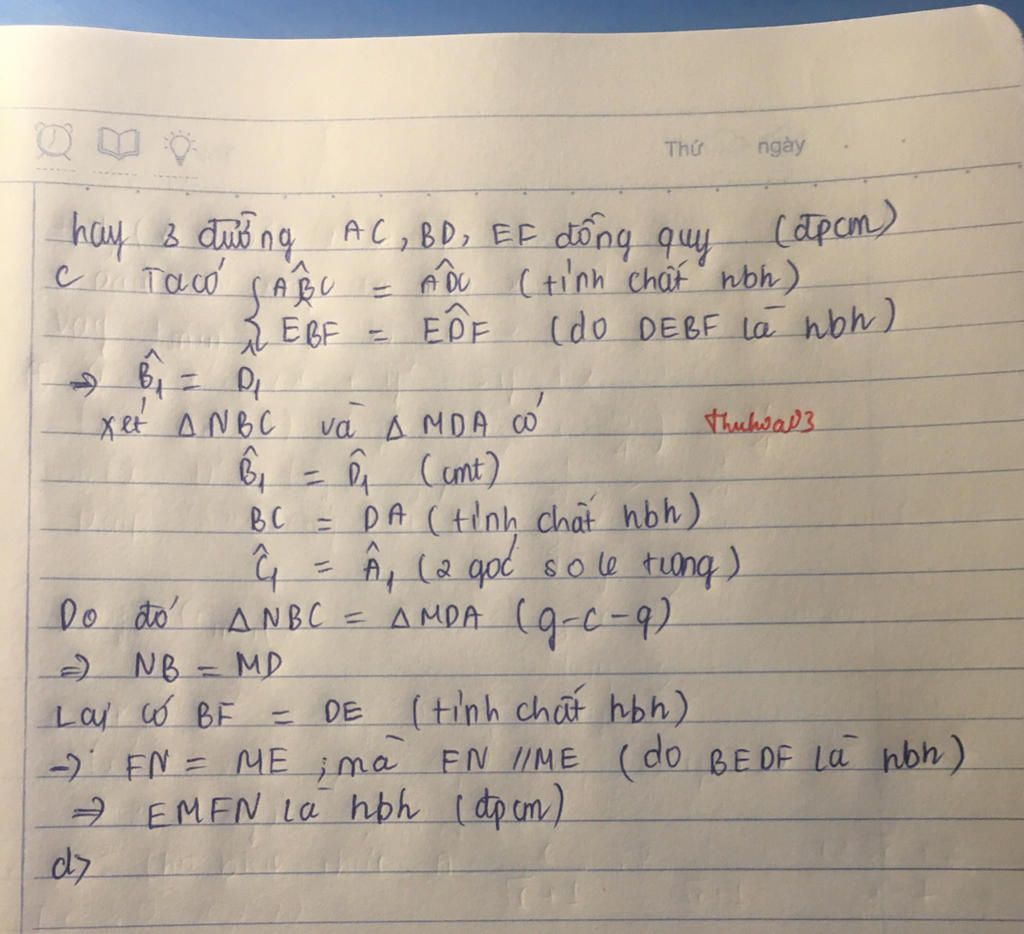 Thứ ngày
hay 3 đường AC, BD, EF đồng quy (đpcm)
C Ta có { ABĈ = ADĈ (tính chất hbh)
EBF = EDF̂ (do DEBF là hbh)
=> B̂₁ = D₁
xét △NBC và △MDA có
thuhoa03
B̂₁ = D̂₁ (cmt)
BC = DA (tính chất hbh)
Ĉ₁ = Â₁ (2 góc so le trong)
Do đó △NBC = △MDA (g-c-g)
=> NB = MD
Lại có BF = DE (tính chất hbh)
=> FN = ME ; mà FN // ME (do BEDF là hbh)
=> EMFN là hbh (đpcm)
d>